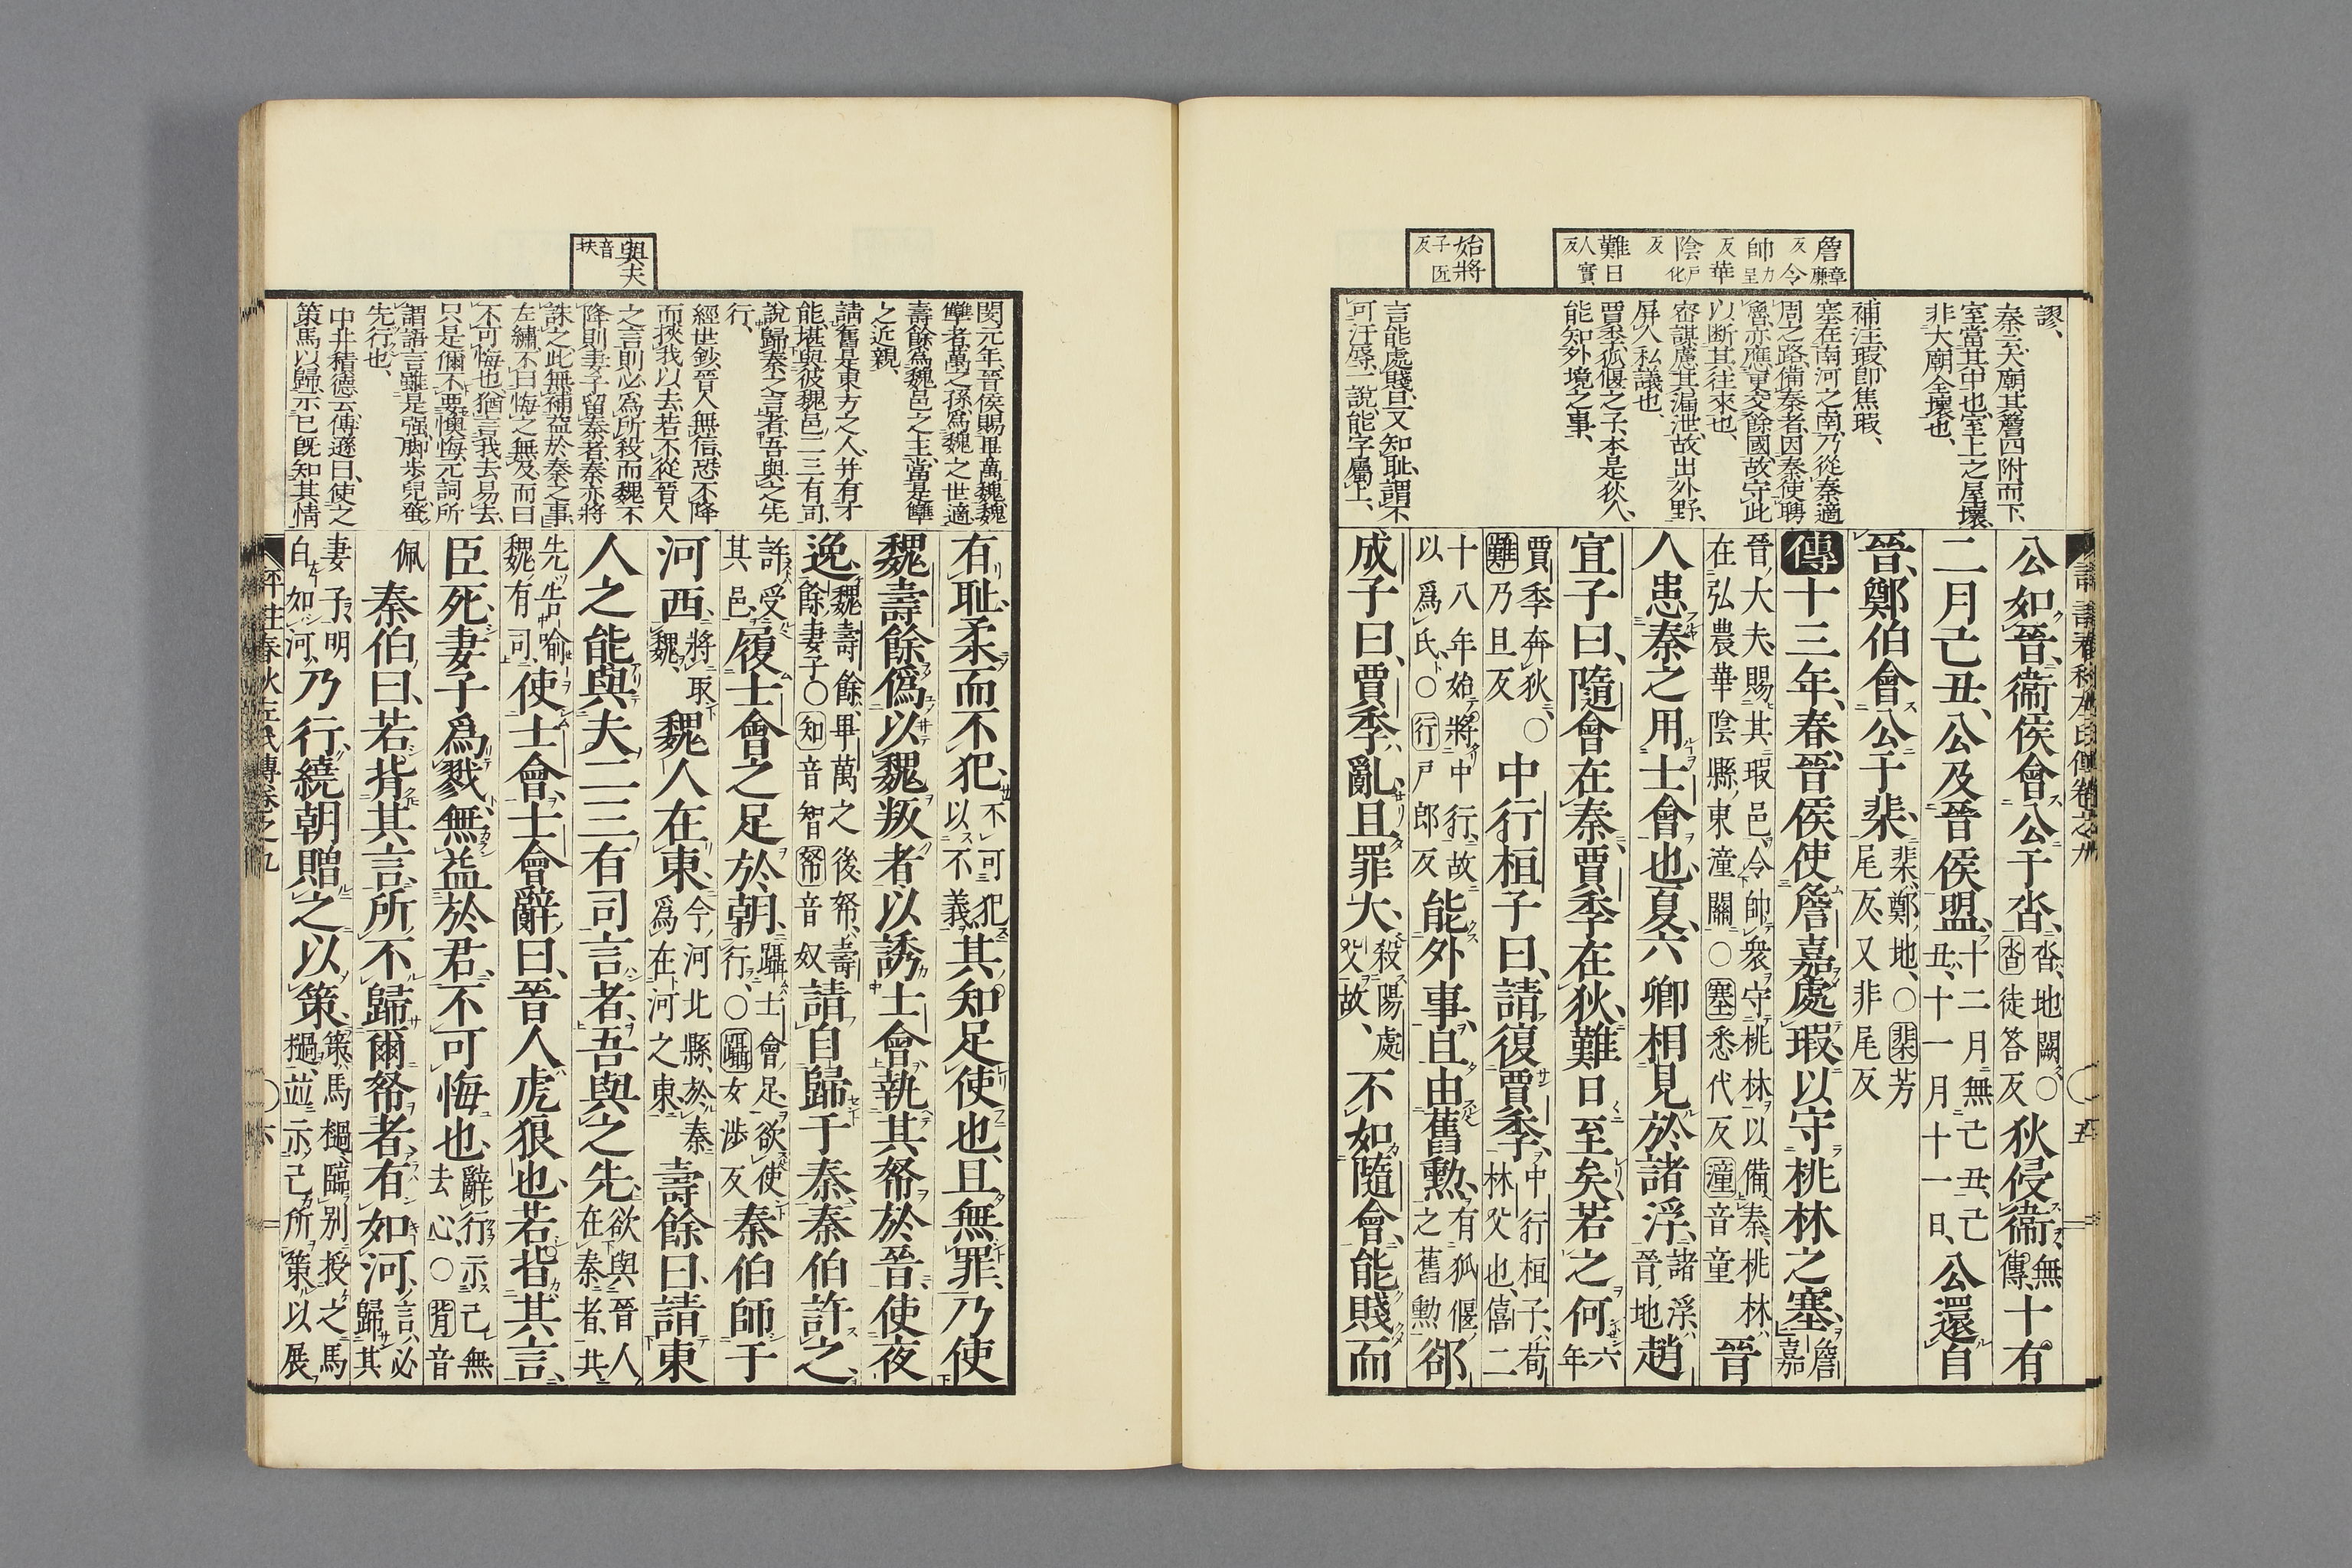 詹章廉反
令力呈反
帥
華戶化反
陰
難人實反
日
始將子匠反
謬、
秦云大廟其簷四附而下、
室當其中也、室上之屋壞、
非大廟全壞也、
補注、瑕、卽焦瑕、
塞在南河之南、乃從秦適
周之路、備秦者、因秦使聘
魯、亦應更交餘國、故守此
以斷其往來也、
密謀慮其漏泄、故出外野、
屏人私議也、
賈季、狐偃之子、本是狄人、
能知外境之事、
言能處賤、且又知恥、謂不
可汙辱、一說、能字屬上、
公如晉、衞侯會公于沓、沓、地闕、○沓徒答反狄侵衞、無傳、十有
二月己丑、公及晉侯盟、十二月無己丑、己丑、十一月十一日、公還自
晉、鄭伯會公于棐、棐、鄭地、○棐芳尾反、又非尾反
傳十三年、春、晉侯使詹嘉處瑕、以守桃林之塞、詹嘉
晉大夫、賜其瑕邑、令帥衆守桃林以備秦、桃林、在弘農華陰縣東潼關、○塞悉代反潼音童晉
人患秦之用士會也、夏、六卿相見於諸浮、諸浮、晉地趙
宣子曰、隨會在秦、賈季在狄、難日至矣、若之何、六年
賈季奔狄、○難乃旦反中行桓子曰、請復賈季、中行桓子、荀林父也、僖二
十八年始將中行、故以爲氏、○行戶郎反能外事、且由舊勳、有狐偃之舊勳郤
成子曰、賈季亂、且罪大、殺陽處父故、不如隨會、能賤而
評註春秋左氏傳卷之九
○五
與夫音扶
閔元年、晉侯賜畢萬魏、魏
犨者、萬之孫、爲魏之世適、
壽餘爲魏邑之主、當是犨
之近親、
請舊是東方之人、幷有才
能、堪與彼魏邑二三有司、
說歸秦之言者、吾與之先
行、
經世鈔、晉人無信、恐不降
而挾我以去、若不從晉人
之言、則必爲所殺、而魏不
降、則妻子留秦者、秦亦將
誅之、此無補益於秦之事、
左繡、不曰悔之無及、而曰
不可悔也、猶言我去易去、
只是儞不要懊悔、元詞所
謂語言雖是强、脚步兒蚤
先行也、
中井積德云、傳遜曰、使之
策馬以歸、示已旣知其情
有恥、柔而不犯、不可犯以不義其知足使也、且無罪、乃使
魏壽餘僞以魏叛者、以誘士會、執其帑於晉、使夜
逸、魏壽餘、畢萬之後、帑、壽餘妻子、○知音智帑音奴請自歸于秦、秦伯許之、
許受其邑、履士會之足於朝、躡士會足、欲使行、○躡女涉反秦伯師于
河西、將取魏、魏人在東、今河北縣、於秦爲在河之東、壽餘曰、請東
人之能與夫二三有司言者、吾與之先、欲與晉人在秦者、共
先告喻魏有司、使士會、士會辭曰、晉人虎狼也、若背其言、
臣死、妻子爲戮、無益於君、不可悔也、辭行、示己無去心、○背音
佩秦伯曰、若背其言、所不歸爾帑者、有如河、言必歸其
妻子、明白如河、乃行、繞朝贈之以策、策、馬檛、臨別授之馬檛、竝示己所策以展
評註春秋左氏傳卷之九
○六